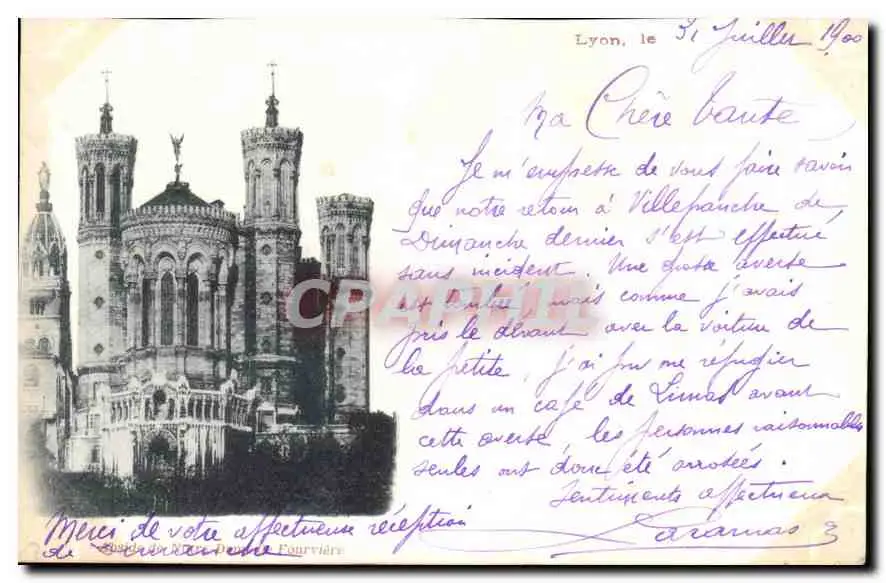 Lyon, le 31 Juillet 1900
Ma Chère Tante
Je m'empresse de vous faire savoir
que notre retour à Villefranche de
Dimanche dernier s'est effectué
sans incident. Une grosse averse
est tombée, mais comme j'avais
pris le devant avec la voiture de
la petite, j'ai pu me réfugier
dans un café de Limas avant
cette averse, les personnes raisonnables
seules ont donc été arrosées.
Sentiments affectueux
CPAPHIL
Merci de votre affectueuse réception
de Dimanche
Abside de Notre Dame de Fourvière